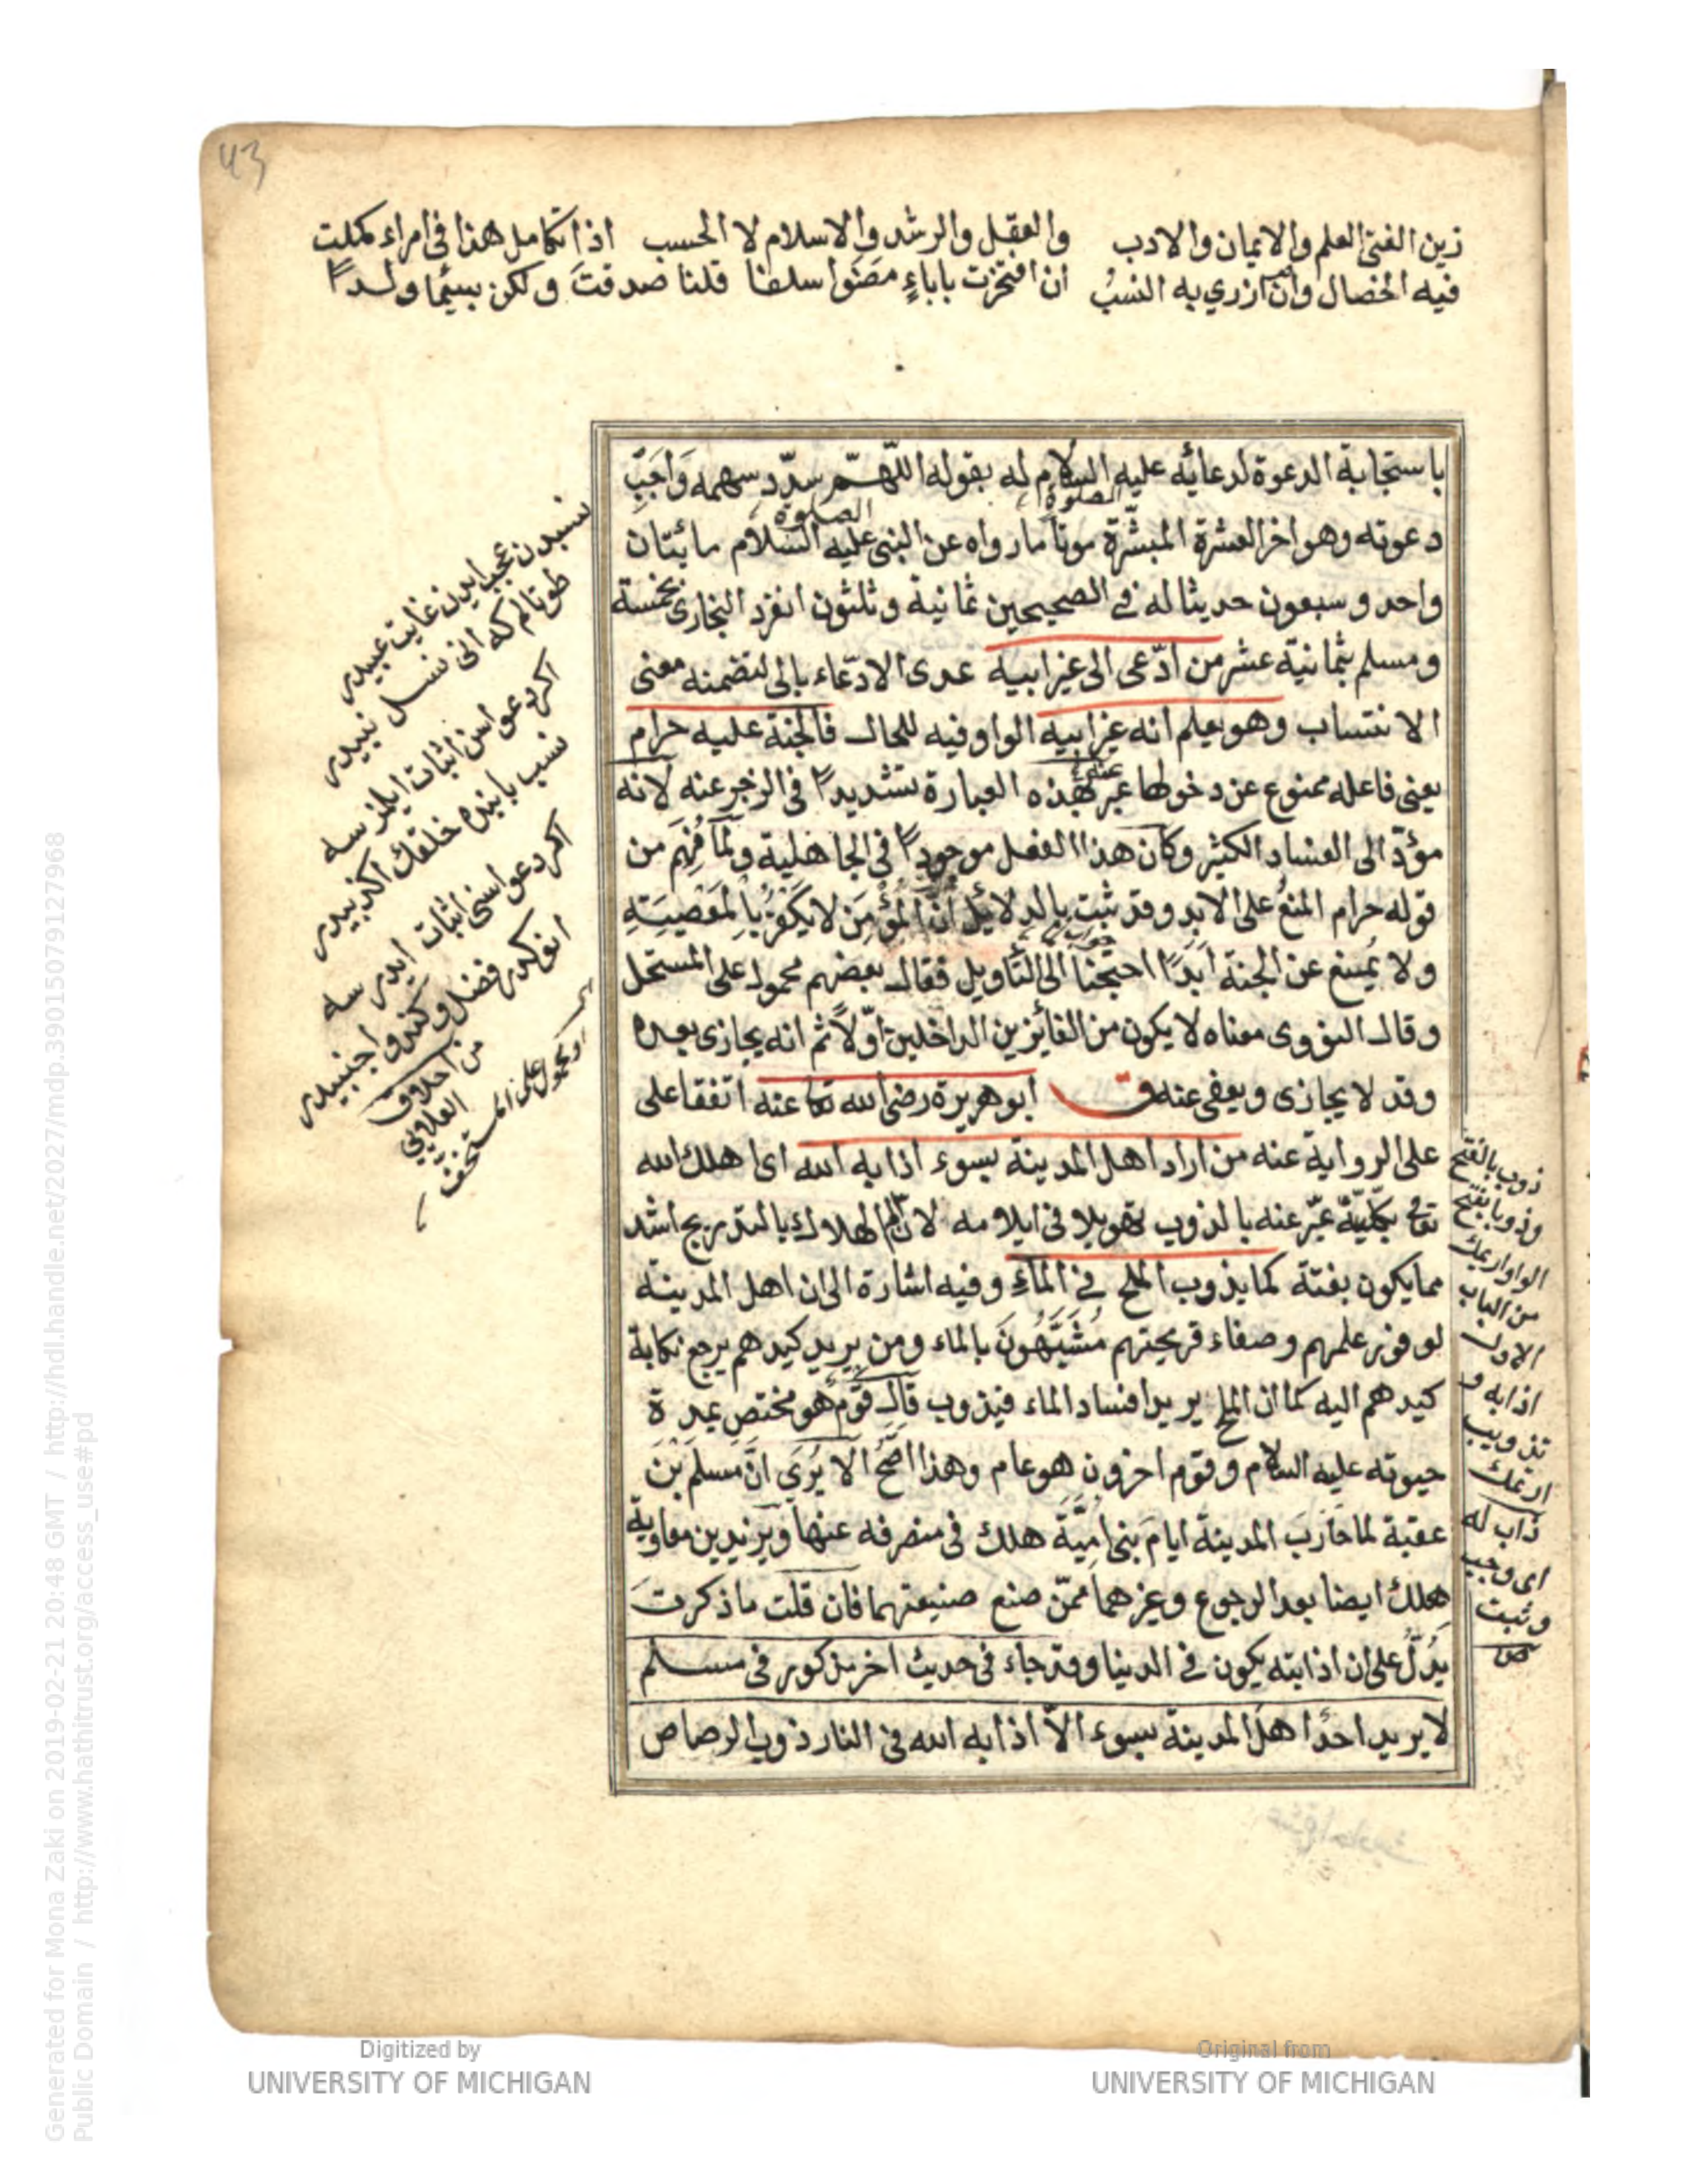 43
زين الفتى العلم والايمان والادب والعقل والرشد والاسلام لا الحسب اذا تكامل هذا فى امراء كملت
فيه الخصال وان ازري به النسب ان افتخرت باباءٍ مضوا سلفا قلنا صدقت ولكن بسئما ولدا
باستجابة الدعوة لدعائه عليه السلام له بقوله اللّهمّ سدّد سهمه وَاَجِبّ
الصلوة
دعوته وهو اخر العشرة المبشّرة موتا ما رواه عن النبى عليه السلام مائتان
الصلوة
واحد وسبعون حديثا له فى الصحيحين ثمانية وثلثون انفرد البخارى بخمسة
ومسلم بثمانية عشر من ادّعى الى غير ابيه عدى الادّعاء بالى لتضمنه معنى
الانتساب وهو يعلم انه غير ابيه الواو فيه للحال فالجنة عليه حرام
يعنى فاعله ممنوع عن دخولها عبر بهذه العبارة تشديداً فى الزجر عنه لانه
مؤدّ الى الفساد الكثير وكان هذا الفعل موجوداً فى الجاهلية ولمّا فُهِم من
قوله حرام المنعُ على الابد وقد ثبت بالدلائل انّ المُؤْمِنَ لا يَكْفُرُ بِالْمَعْصِيَةِ
ولا يُمنع عن الجنة اَبَدًا احتَجْنا الى التَّأويل فقال بعضهم محمول على المستحل
وقال النووى معناه لا يكون من الفائزين الداخلين اوّلاً ثم انه يجازى بعده
وقد لا يجازى ويعفى عنه ق ابو هريرة رضى الله تعا عنه اتفقا على
على الرواية عنه من اراد اهل المدينة بسوء اذابه الله اى اهلك الله
تعا بكلّيّة عبّر عنه بالذوب تهويلا فى ايلامه لانّ الم الهلاك بالتدريج اشد
مما يكون بغتة كما يذوب الملح فى الماء وفيه اشارة الى ان اهل المدينة
لوفور علمهم وصفاء قريحتهم مُشَبَّهُونَ بالماء ومن يريد كيدهم يرجع نكاية
كيدهم اليه كما ان الملح يريد افساد الماء فيذوب قال قوم هو مختص بمدة
حيوته عليه السلام وقوم اخرون هو عام وهذا اصحّ الا يُرَى انّ مسلم بْنَ
عقبة لما حَارَبَ المدينة ايام بنى اميَّةَ هلك فى منصرفه عنها ويزيد بن معاوية
هلك ايضا بعد الرجوع وغيرهما ممّن صنع صنيعتهما فان قلت ما ذكرت
يدُلّ على ان اذابته يكون فى الدنيا وقد جاء فى حديث اخر مذكور فى مسلم
لا يريد احدٌ اهل المدينة بسوء الاّ اذابه الله فى النار ذوب الرصاص
نسبدن عجب ايدن غايت عبيدر
طوتالم كه انى نسل نبيدر
اكر دعواسن اثبات ايلمز سه
نسب بابنده خلقك اكذبيدر
اكر دعواسنى اثبات ايدر سه
من اخلاق
العلايي
محمول على المستخف
ذوب بالفتح
وذوبا بفتح
الواو اريمك
من الباب
الاول
اذابه و
تذويب
ارتمك
ذاب له
اى وجب
وثبت